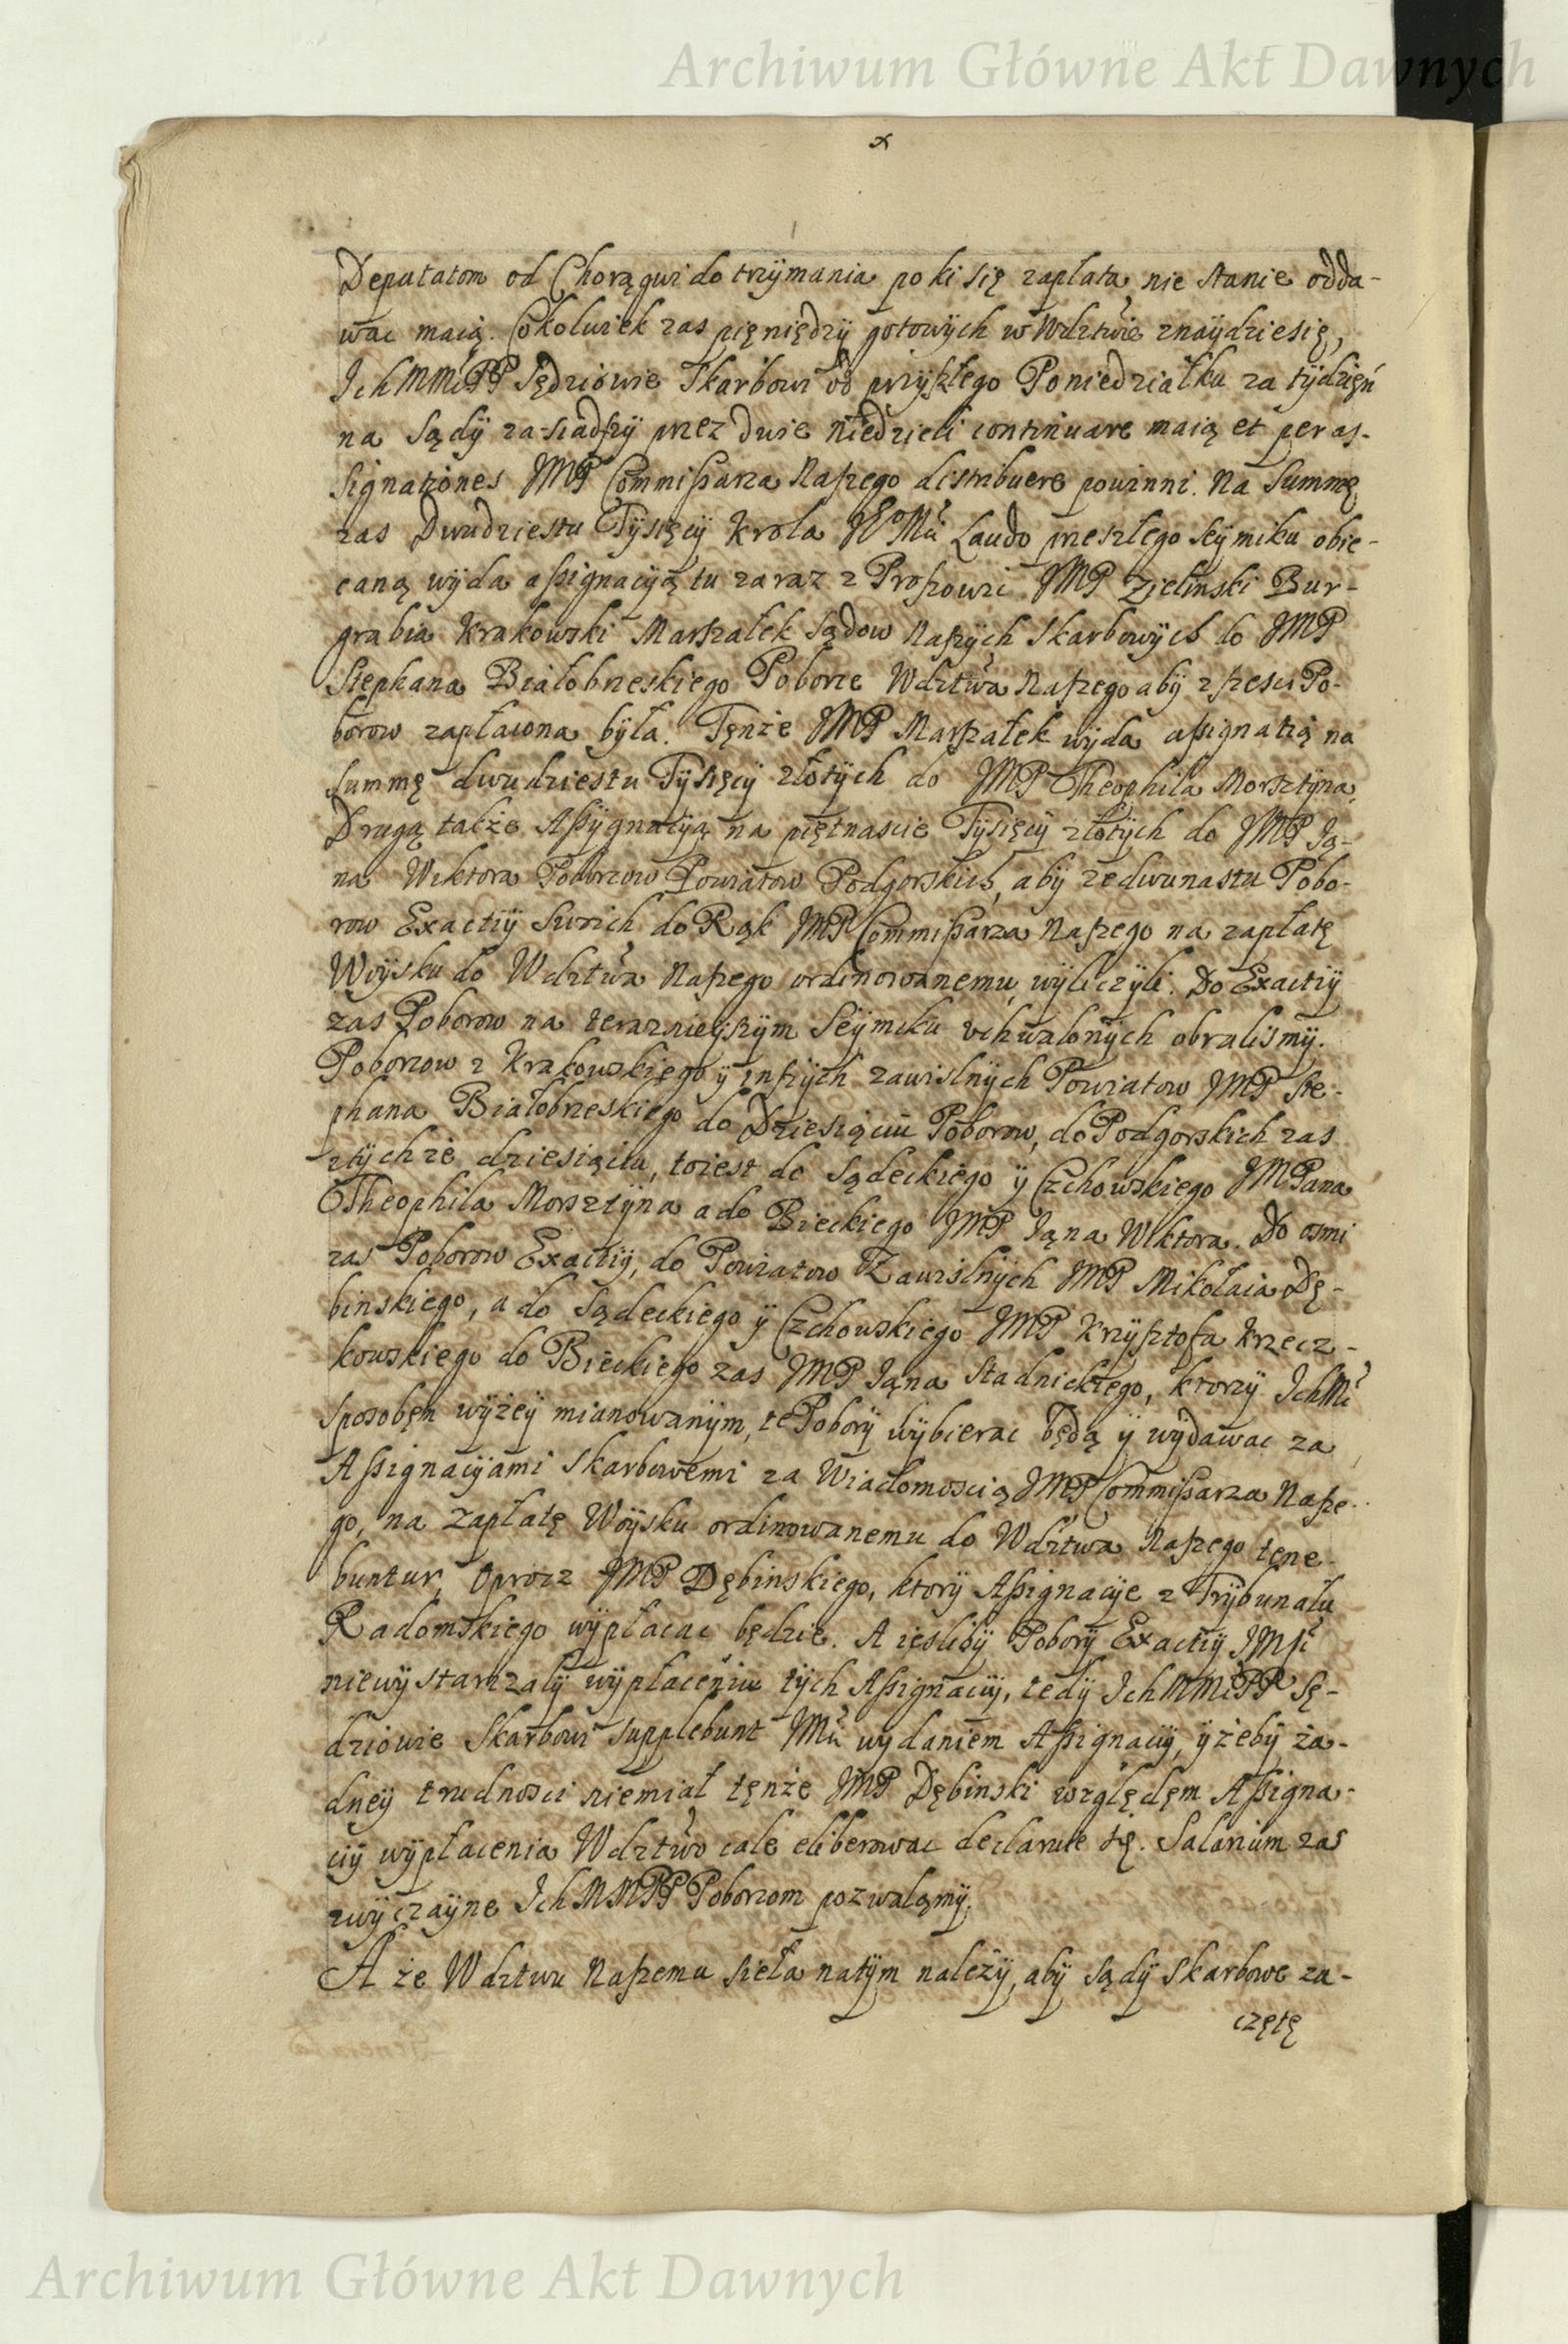 Archiwum Główne Akt Dawnych
Deputatom od Chorągwi do trzÿmania poki się zapłata nie stanie odda-
wac maią. Cokolwiek zas pięniędzÿ gotowÿch w Wdztwie znaÿdziesię,
Ich MMċPP Sędziowie Skarbowi od przÿszłego Poniedziałku za tÿdzięń
na Sądÿ za-siadszÿ przez dwie niedzieli continuare maią et per as-
signationes JMP Commissarza Naszego distribuere powinni. Na Summę
zas Dwudziestu Tÿsięcÿ Krola JEo Mċi Laudo przeszłego Seÿmiku obie-
caną wÿda assignacÿą tu zaraz z Proszowic JMP Zielinski Bur-
grabia Krakowski Marszałek Sądow Naszÿch Skarbowÿch do JMP
Stephana Białobrzeskiego Poborce Wdztwa Naszego abÿ z szesci Po-
borow zapłacona bÿła. Tęnże JMP Marszałek wÿda assignatią na
summę dwudziestu Tÿsięcÿ złotÿch do JMP Theophila Morsztÿna,
Drugą także Assÿgnacÿą na piętnascie Tÿsięcÿ złotÿch do JMP Ją-
na Wiktora Poborcow Powiatow Podgorskich, abÿ ze dwunastu Pobo-
row Exactiÿ Swich do Rąk JMP Commissarza Naszego na zapłatę
Woÿsku do Wdztwa Naszego ordinowanemu wÿliczÿli. Do Exactiÿ
zas Poborow na terazniejszÿm Seÿmiku vchwalonÿch obralismÿ.
Poborcow z Krakowskiego ÿ inszÿch zawislnÿch Powiatow JMP Ste-
phana Białobrzeskiego do Dziesiąciu Poborow, do Podgorskich zas
ztÿchże dziesiąciu, toiest do Sądeckiego ÿ Czchowskiego JMPana
Theophila Morsztÿna a do Bieckiego JMP Jąna Wiktora. Do osmi
zas Poborow Exactiÿ, do Powiatow Zawislnÿch JMP Mikołaia Dę-
binskiego, a do Sądeckiego ÿ Czchowskiego JMP Krzÿsztofa Krzecz-
kowskiego do Bieckiego zas JMP Jąna Stadnickiego, ktorzÿ IchMċ
sposobęm wÿżeÿ mianowanÿm, te Poborÿ wÿbierac będą ÿ wÿdawac za
Assignacÿami Skarbowemi za Wiadomoscią JMP Commissarza Nasze-
go, na zapłatę Woÿsku ordinowanemu do Wdztwa Naszego tęne-
buntur, Oprocz JMP Dębinskiego, ktorÿ Assignacÿe z Trÿbunału
Radomskiego wÿpłacac będzie. A ięslibÿ Poborÿ Exactiÿ JMsċi
niewÿstarczałÿ wÿpłaceniu tÿch Assignaciÿ, tedÿ Ich MMċPP Sę-
dziowie Skarbowi supplebunt JMċi wÿdaniem Assignaciÿ, ÿ żebÿ ża-
dneÿ trudnosci niemiał tęnże JMP Dębinski względęm Assigna-
ciÿ wÿpłacenia Wdztwo cale eliberowac declaruie się. Salarium zas
zwÿczaÿne Ich MMPP Poborcom pozwalamÿ.
A że Wdztwu Naszemu sieła natÿm należÿ, abÿ Sądÿ Skarbowe za-
częte
Archiwum Główne Akt Dawnych